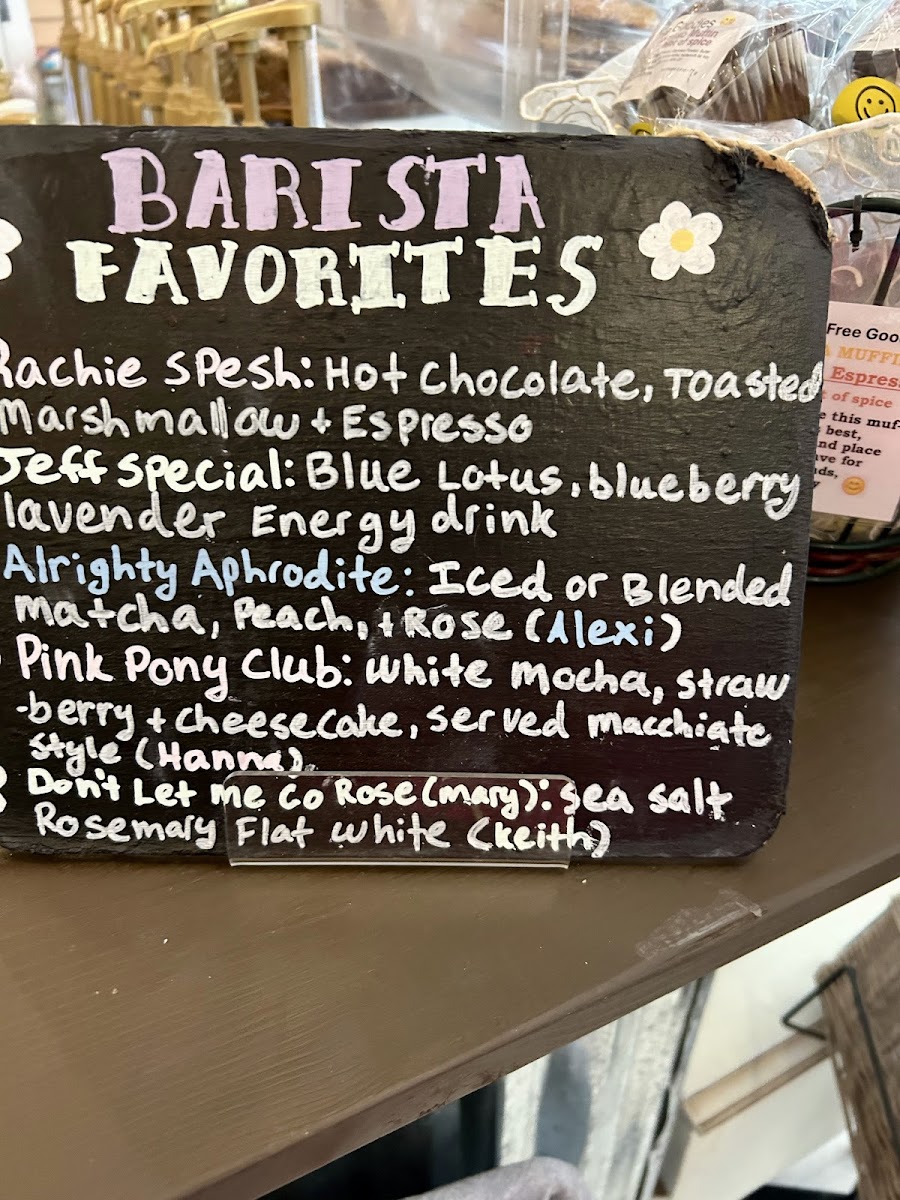 BARISTA
FAVORITES
Rachie Spesh: Hot Chocolate, Toasted
Marshmallow + Espresso
Jeff Special: Blue Lotus, blueberry
lavender Energy drink
Alrighty Aphrodite: Iced or Blended
matcha, Peach, + Rose (Alexi)
Pink Pony Club: white mocha, straw
-berry + cheesecake, served macchiato
style (Hanna)
Don't Let me Go Rose(mary): sea salt
Rosemary Flat white (Keith)
Free Goo
MUFFI
Espres
of spice
this muf-
best,
nd place
ve for
of spice